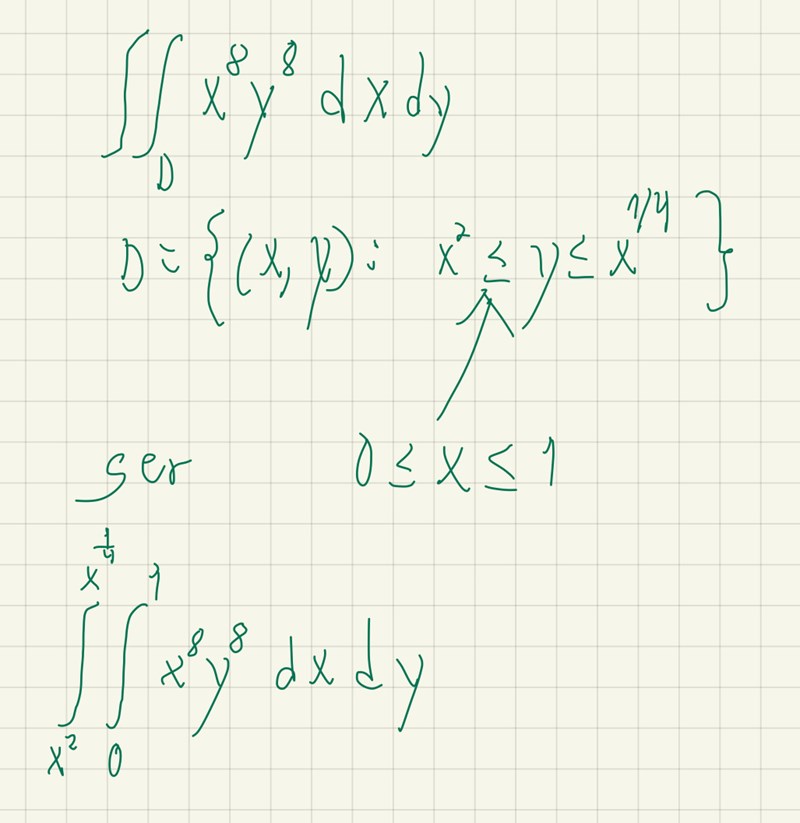 ∬_D x^8 y^8 dx dy
D = {(x, y): x^2 ≤ y ≤ x^{1/4}}
ger 0 ≤ x ≤ 1
∫_{x^2}^{x^{1/4}} ∫_0^1 x^8 y^8 dx dy